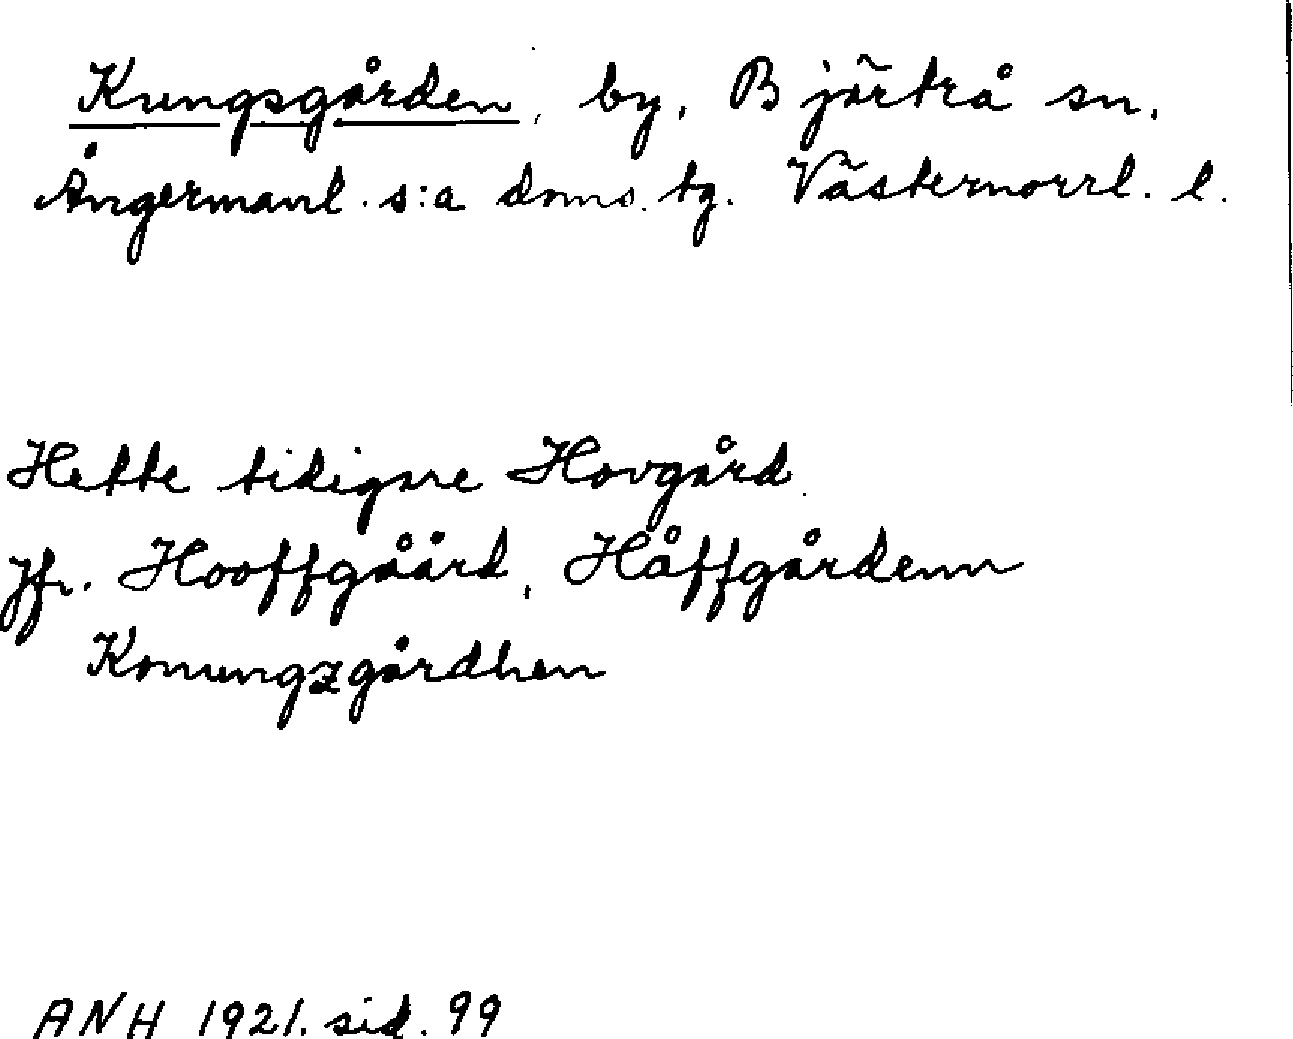 Kungsgården, by, Bjärtrå sn,
Ångermanl. s:a doms. tg. Västernorrl. l.
Hette tidigare Hovgård.
Jfr. Hooffgåård, Håffgårdenn
Konungzgårdhen
ANH 1921. sid. 99